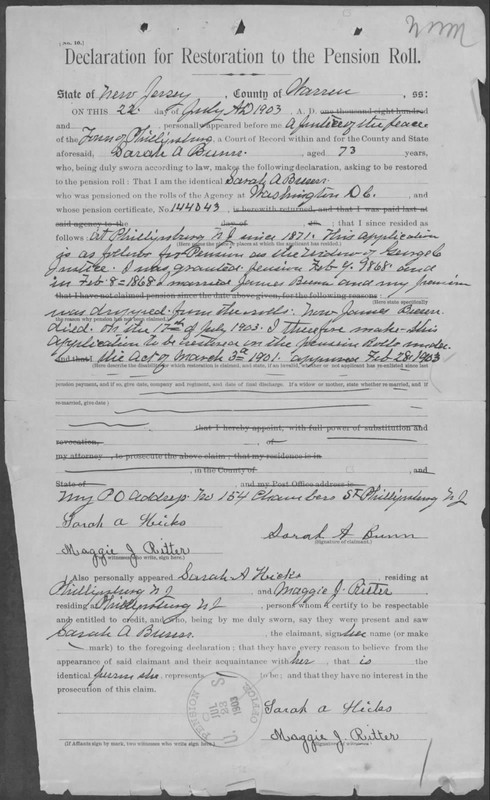 [No. 10.]
Declaration for Restoration to the Pension Roll.
State of New Jersey, County of Warren, ss:
ON THIS 22 day of July AD 1903, A. D. one thousand eight hundred
and , personally appeared before me A Justice of the peace
of the Town of Phillipsburg, a Court of Record within and for the County and
State aforesaid, Sarah A Bunn, aged 73 years,
who, being duly sworn according to law, makes the following declaration, asking to be restored
to the pension roll: That I am the identical Sarah A Bunn
who was pensioned on the rolls of the Agency at Washington D.C., and
whose pension certificate, No. 144043, is herewith returned, and that I was paid last at
said agency to the day of , 18 ; that I since resided as
follows at Phillipsburg NJ since 1871. This application
(Here name the place or places at which the applicant has resided.)
is as follows for Pension as the widow of George C
Justice. I was granted pension Feb 4, 1868 and
in Feb 8 = 1868 married James Bunn and my pension
that I have not claimed pension since the date above given, for the following reasons:
(Here state specifically
was dropped from the rolls. Now James Bunn
the reason why pension has not been claimed.)
died on the 17th of July 1903. I therefore make this
application to be on the pension Rolls under
and that the Act of March 3rd 1901. approved Feb 28 1903
(Here describe the disability for which restoration is claimed, and state, if an invalid, whether or not applicant has re-enlisted since last
pension payment, and if so, give date, company and regiment, and date of final discharge. If a widow or mother, state whether re-married, and if
re-married, give date;)
that I hereby appoint, with full power of substitution and
revocation, , of
my attorney , to prosecute the above claim; that my residence is in
, in the County of , and
State of , and my Post Office address is
My PO Address No 154 Chambers St Phillipsburg NJ
Sarah A Hicks
Sarah A Bunn
Maggie J. Ritter
(Signature of claimant.)
witnesses who write, sign here.)
Also personally appeared Sarah A Hicks, residing at
Phillipsburg NJ and Maggie J. Ritter,
residing at Phillipsburg NJ, persons whom I certify to be respectable
and entitled to credit, and who, being by me duly sworn, say they were present and saw
Sarah A Bunn, the claimant, sign her name (or make
mark) to the foregoing declaration; that they have every reason to believe from the
appearance of said claimant and their acquaintance with her, that is the
identical person she represents to be; and that they have no interest in the
prosecution of this claim.
U. S. PENSION OFFICE
JUL 23 1903
Sarah A Hicks
Maggie J. Ritter
(If Affiants sign by mark, two witnesses who write sign here.)
(Signature of witnesses.)